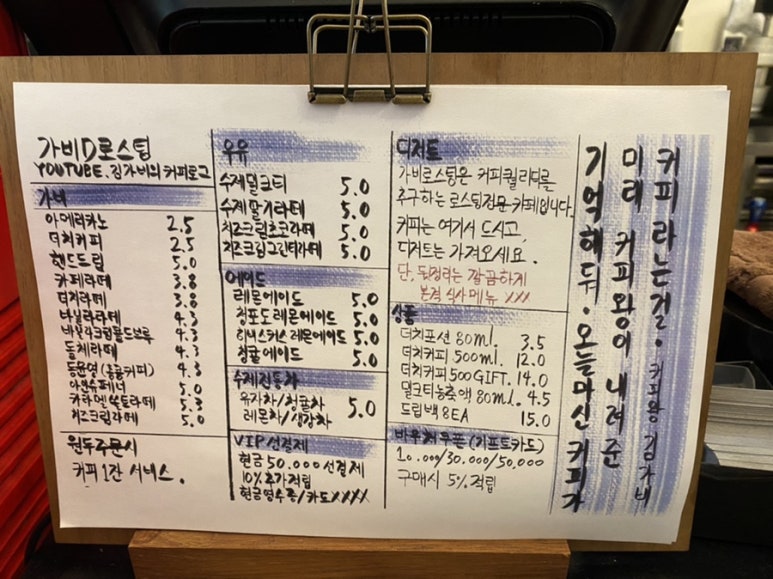 가비D로스팅
YOUTUBE. 김가비의 커피로그
가비
아메리카노 2.5
더치커피 2.5
핸드드립 5.0
카페라떼 3.8
더치라떼 3.8
바닐라라떼 4.3
바닐라크림콜드브루 4.3
돌체라떼 4.3
동윤영(콩꿀커피) 4.3
아샷슈페너 5.0
카라멜쑥돌라떼 5.3
치즈크림라떼 5.0
원두주문시
커피 1잔 서비스.
우유
수제밀크티 5.0
수제딸기라떼 5.0
치즈크림초코라떼 5.0
치즈크림그린티라떼 5.0
에이드
레몬에이드 5.0
청포도레몬에이드 5.0
히비스커스 레몬에이드 5.0
청귤에이드 5.0
수제전통차
유자차/청귤차
레몬차/생강차 5.0
VIP선결제
현금 50.000 선결제
10% 추가적립
현금영수증/카드XXXX
디저트
가비로스팅은 커피퀄리티를
추구하는 로스팅전문 카페입니다.
커피는 여기서 드시고
디저트는 가져오세요.
단, 뒷정리는 깔끔하게
본격 식사메뉴 XXX
상품
더치포션 80ml. 3.5
더치커피 500ml. 12.0
더치커피 500GIFT. 14.0
밀크티농축액 80ml. 4.5
드립백 8EA 15.0
바우처쿠폰 (기프트카드)
10.000/30.000/50,000
구매시 5% 적립
기억해둬. 오늘마신 커피가
미래 커피왕이 내려준
커피라는걸. -커피왕 김가비